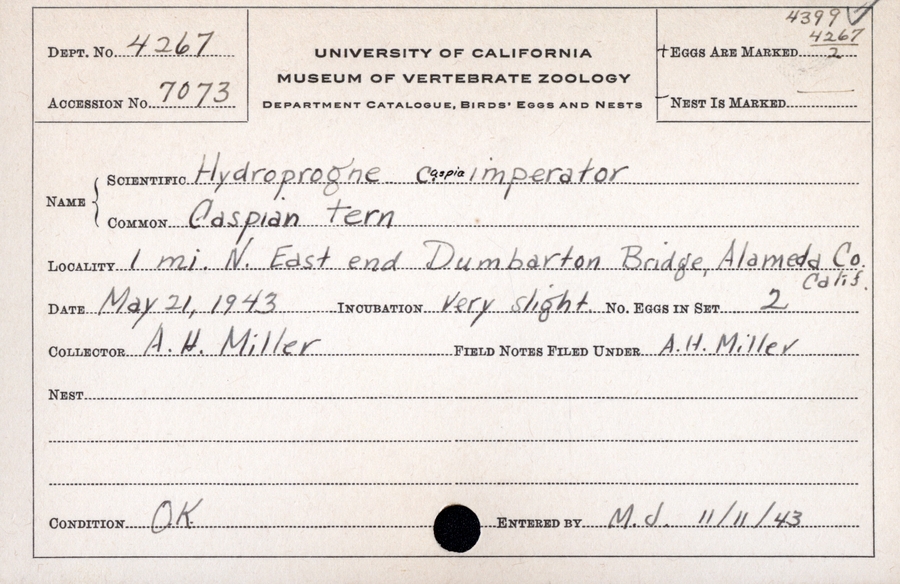 4399 ✓
DEPT. No. 4267
UNIVERSITY OF CALIFORNIA
+ EGGS ARE MARKED 4267/2
MUSEUM OF VERTEBRATE ZOOLOGY
ACCESSION No. 7073
DEPARTMENT CATALOGUE, BIRDS' EGGS AND NESTS
– NEST IS MARKED
NAME { SCIENTIFIC Hydroprogne caspia imperator
COMMON Caspian tern
LOCALITY 1 mi. N. East end Dumbarton Bridge, Alameda Co.
Calif.
DATE May 21, 1943 INCUBATION very slight No. EGGS IN SET 2
COLLECTOR A. H. Miller FIELD NOTES FILED UNDER A. H. Miller
NEST
CONDITION OK ENTERED BY M. d. 11/11/43